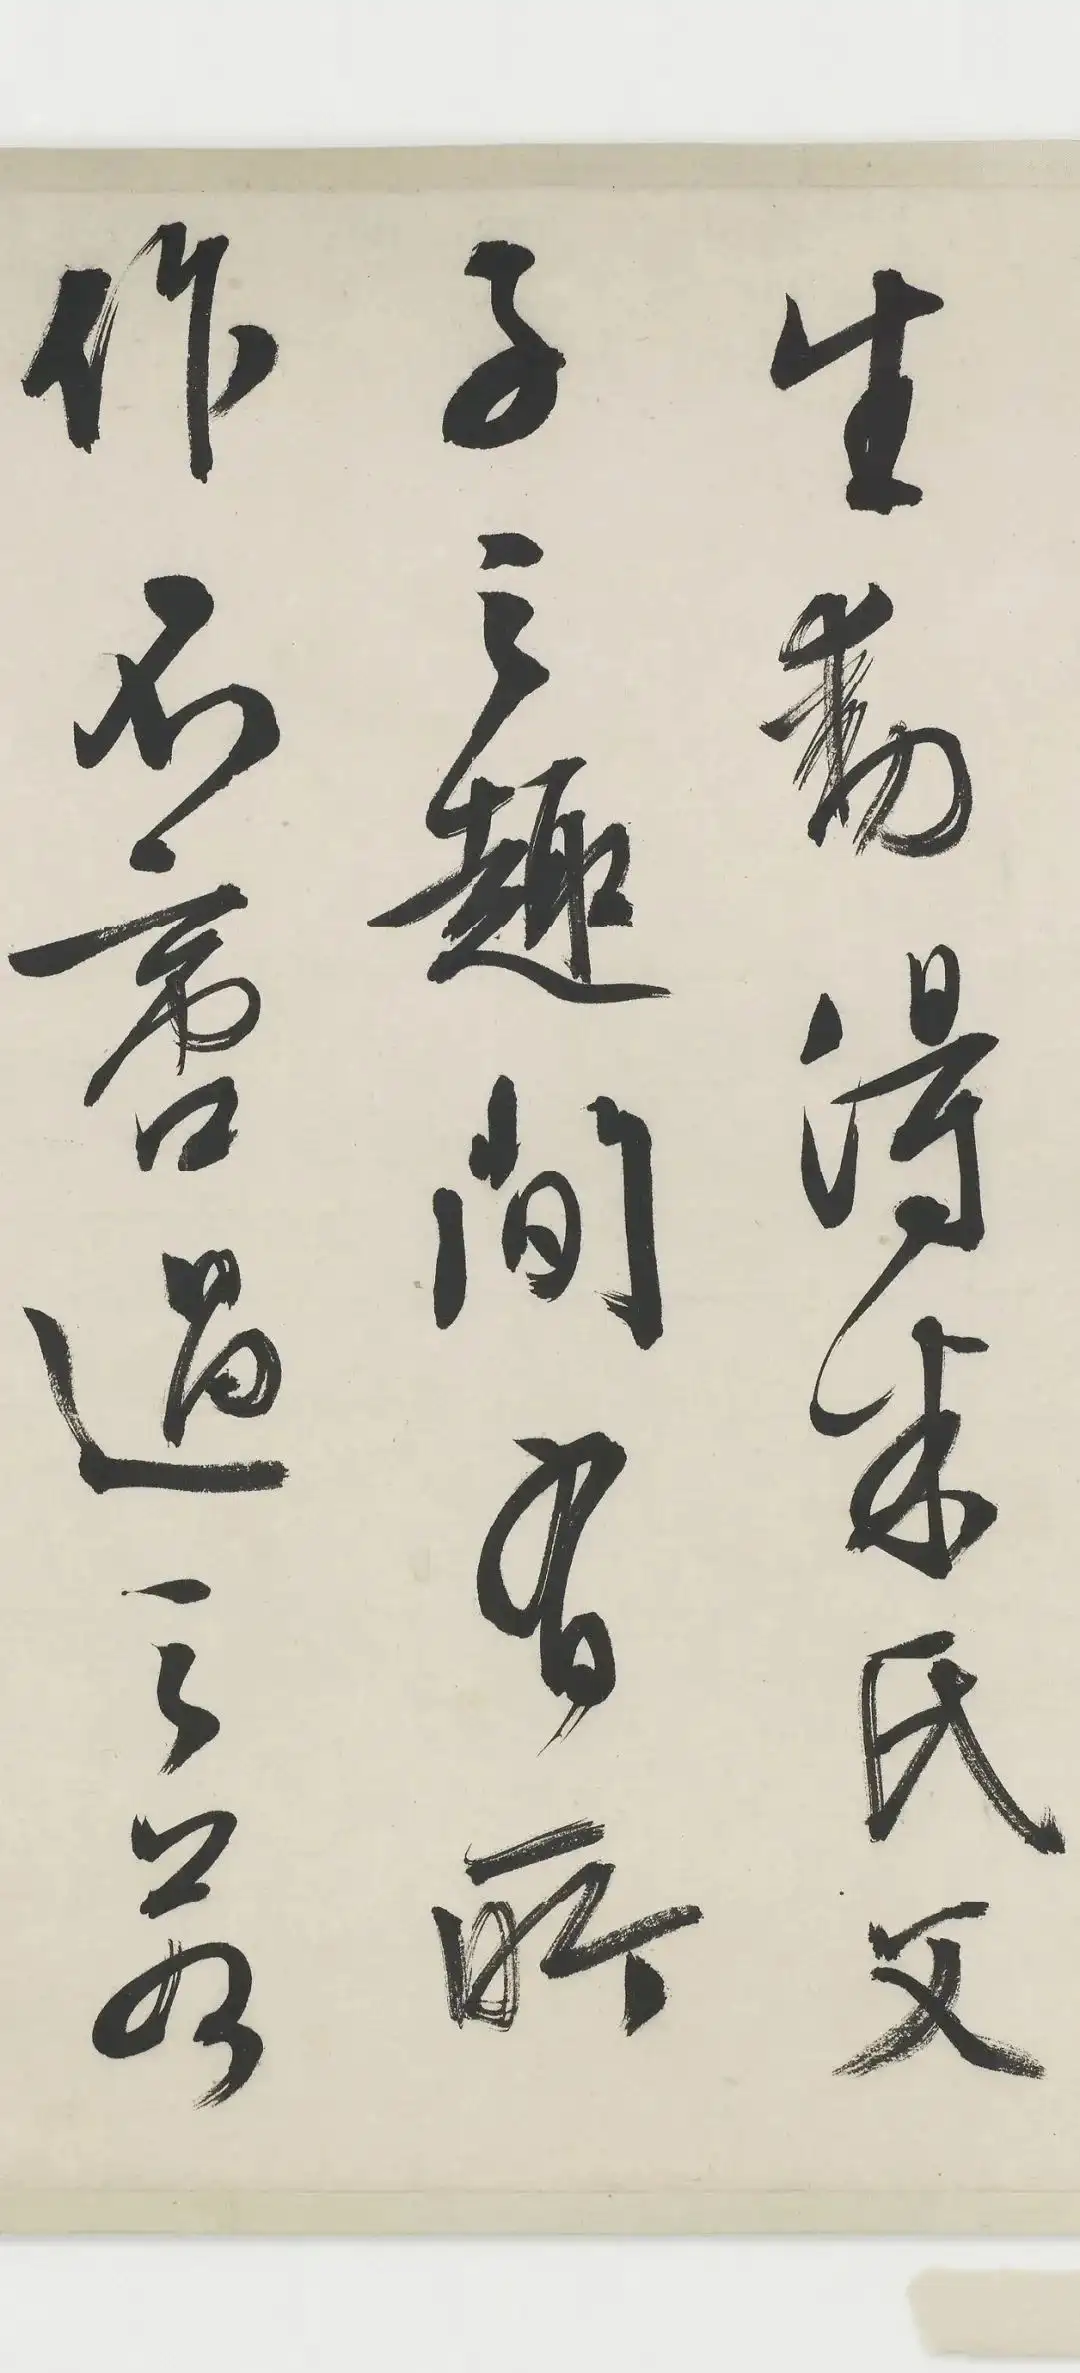 生動得米氏父
子之趣間有所
作不啻過之若